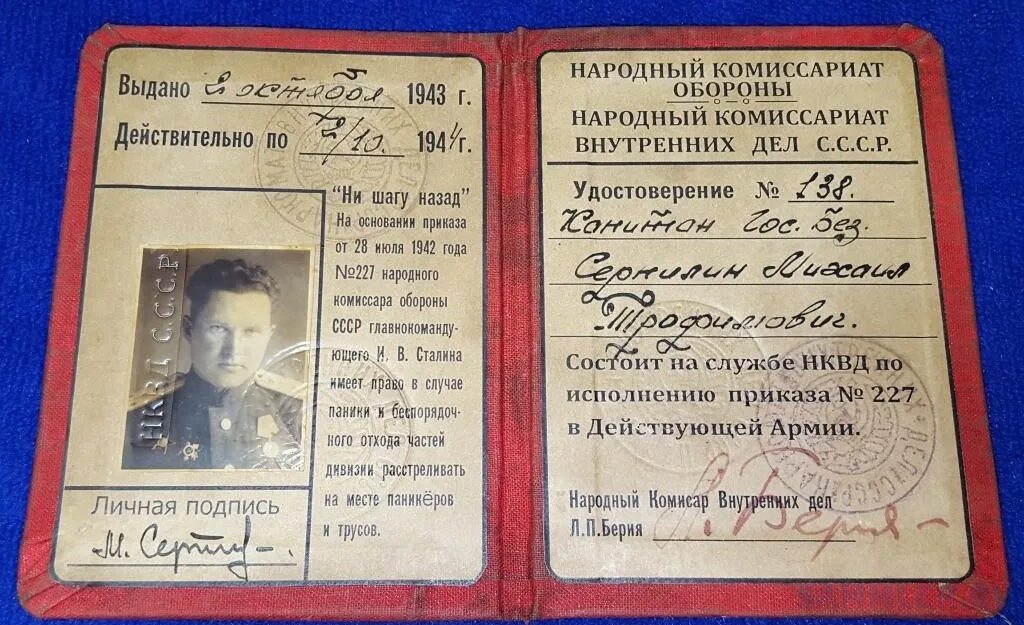 Выдано 2 октября 1943 г.
Действительно по 2/10. 1944 г.
"Ни шагу назад"
На основании приказа
от 28 июля 1942 года
№227 народного
комиссара обороны
СССР главнокоманду-
ющего И. В. Сталина
имеет право в случае
паники и беспорядоч-
ного отхода частей
дивизии расстреливать
на месте паникёров
и трусов.
НКВД С.С.С.Р
Личная подпись
М.
НАРОДНЫЙ КОМИССАРИАТ
ОБОРОНЫ
НАРОДНЫЙ КОМИССАРИАТ
ВНУТРЕННИХ ДЕЛ С.С.С.Р.
Удостоверение № 138.
Капитан Гос. без.
Сернилин Михаил
Трофимович.
Состоит на службе НКВД по
исполнению приказа № 227
в Действующей Армии.
Народный Комисар Внутренних дел
Л.П.Берия Л. Берия